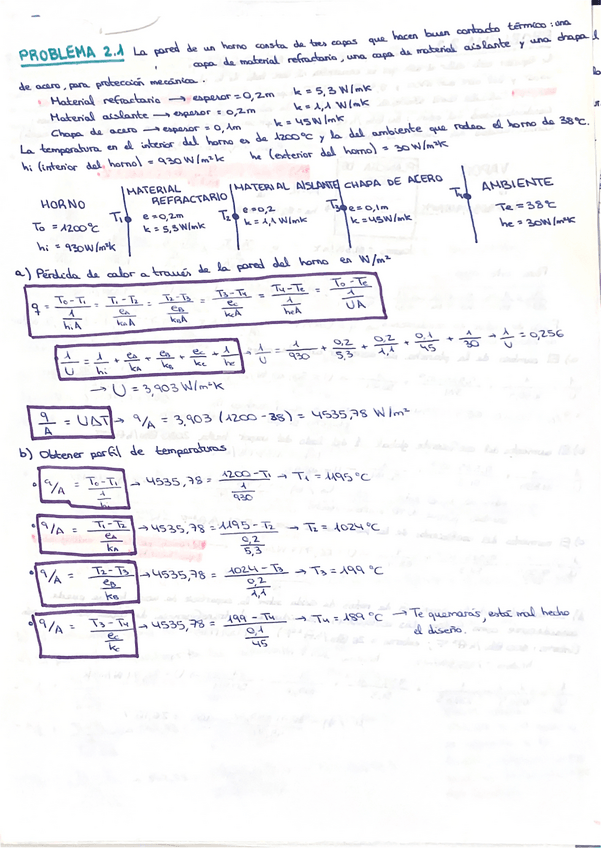 PROBLEMA 2.1 La pared de un horno consta de tres capas que hacen buen contacto térmico: una
capa de material refractario, una capa de material aislante y una chapa
de acero, para protección mecánica.
Material refractario → espesor = 0,2m k = 5,3 W/mk
Material aislante → espesor = 0,2m k = 1,1 W/mk
Chapa de acero → espesor = 0,1m k = 45 W/mk
La temperatura en el interior del horno es de 1200ºC y la del ambiente que rodea el horno de 38ºC.
hi (interior del horno) = 930 W/m²k he (exterior del horno) = 30 W/m²k
HORNO
T0 = 1200ºC
hi = 930 W/m²k
T1
MATERIAL
REFRACTARIO
e = 0,2m
k = 5,3 W/mk
T2
MATERIAL AISLANTE
e = 0,2
k = 1,1 W/mk
T3
CHAPA DE ACERO
e = 0,1m
k = 45 W/mk
T4
AMBIENTE
Te = 38ºC
he = 30 W/m²k
a) Pérdida de calor a través de la pared del horno en W/m²
q = (T0-T1)/(1/hiA) = (T1-T2)/(eA/kAA) = (T2-T3)/(eB/kBA) = (T3-T4)/(eC/kCA) = (T4-Te)/(1/heA) = (T0-Te)/(1/UA)
1/U = 1/hi + eA/kA + eB/kB + eC/kC + 1/he → 1/U = 1/930 + 0,2/5,3 + 0,2/1,1 + 0,1/45 + 1/30 → 1/U = 0,256
→ U = 3,903 W/m²k
q/A = UΔT → q/A = 3,903 (1200 - 38) = 4535,78 W/m²
b) Obtener perfil de temperaturas
• q/A = (T0-T1)/(1/hi) → 4535,78 = (1200-T1)/(1/930) → T1 = 1195 ºC
• q/A = (T1-T2)/(eA/kA) → 4535,78 = (1195-T2)/(0,2/5,3) → T2 = 1024ºC
• q/A = (T2-T3)/(eB/kB) → 4535,78 = (1024-T3)/(0,2/1,1) → T3 = 199 ºC
• q/A = (T3-T4)/(eC/kC) → 4535,78 = (199-T4)/(0,1/45) → T4 = 189 ºC → Te quemarás, está mal hecho
el diseño.